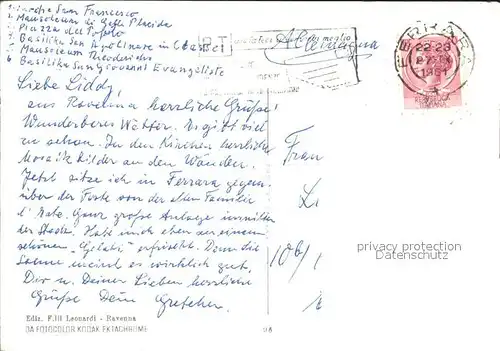 Chiesa San Francesco
Mausoleum di Galla Placida
3 Piazza del Popolo
4 Basilika San Apolinare in Classe
5 Mausoleum Theoderichs
6 Basilika San Giovanni Evangeliste
Alemagna
meglio
FERRARA
22-23
1961
Liebe Liddy,
aus Ravenna herzliche Grüße!
Wunderbares Wetter. Es gibt viel
zu schauen. In den Kirchen herrliche
Mosaik Bilder an den Wänden.
Jetzt sitze ich in Ferrara gegen-
über der Forte von der alten Familie
d'Este. Ganz große Anlage inmitten
der Stadt. Habe mich eben an einem
schönen "Gelati" erfrischt. Denn die
Sonne meint es wirklich gut.
Dir u. Deinen Lieben herzliche
Grüße Dein Gretchen.
Frau
L
106/
privacy protection
www.oldthing.de
Ediz. F.lli Leonardi - Ravenna
DA FOTOCOLOR KODAK EKTACHROME